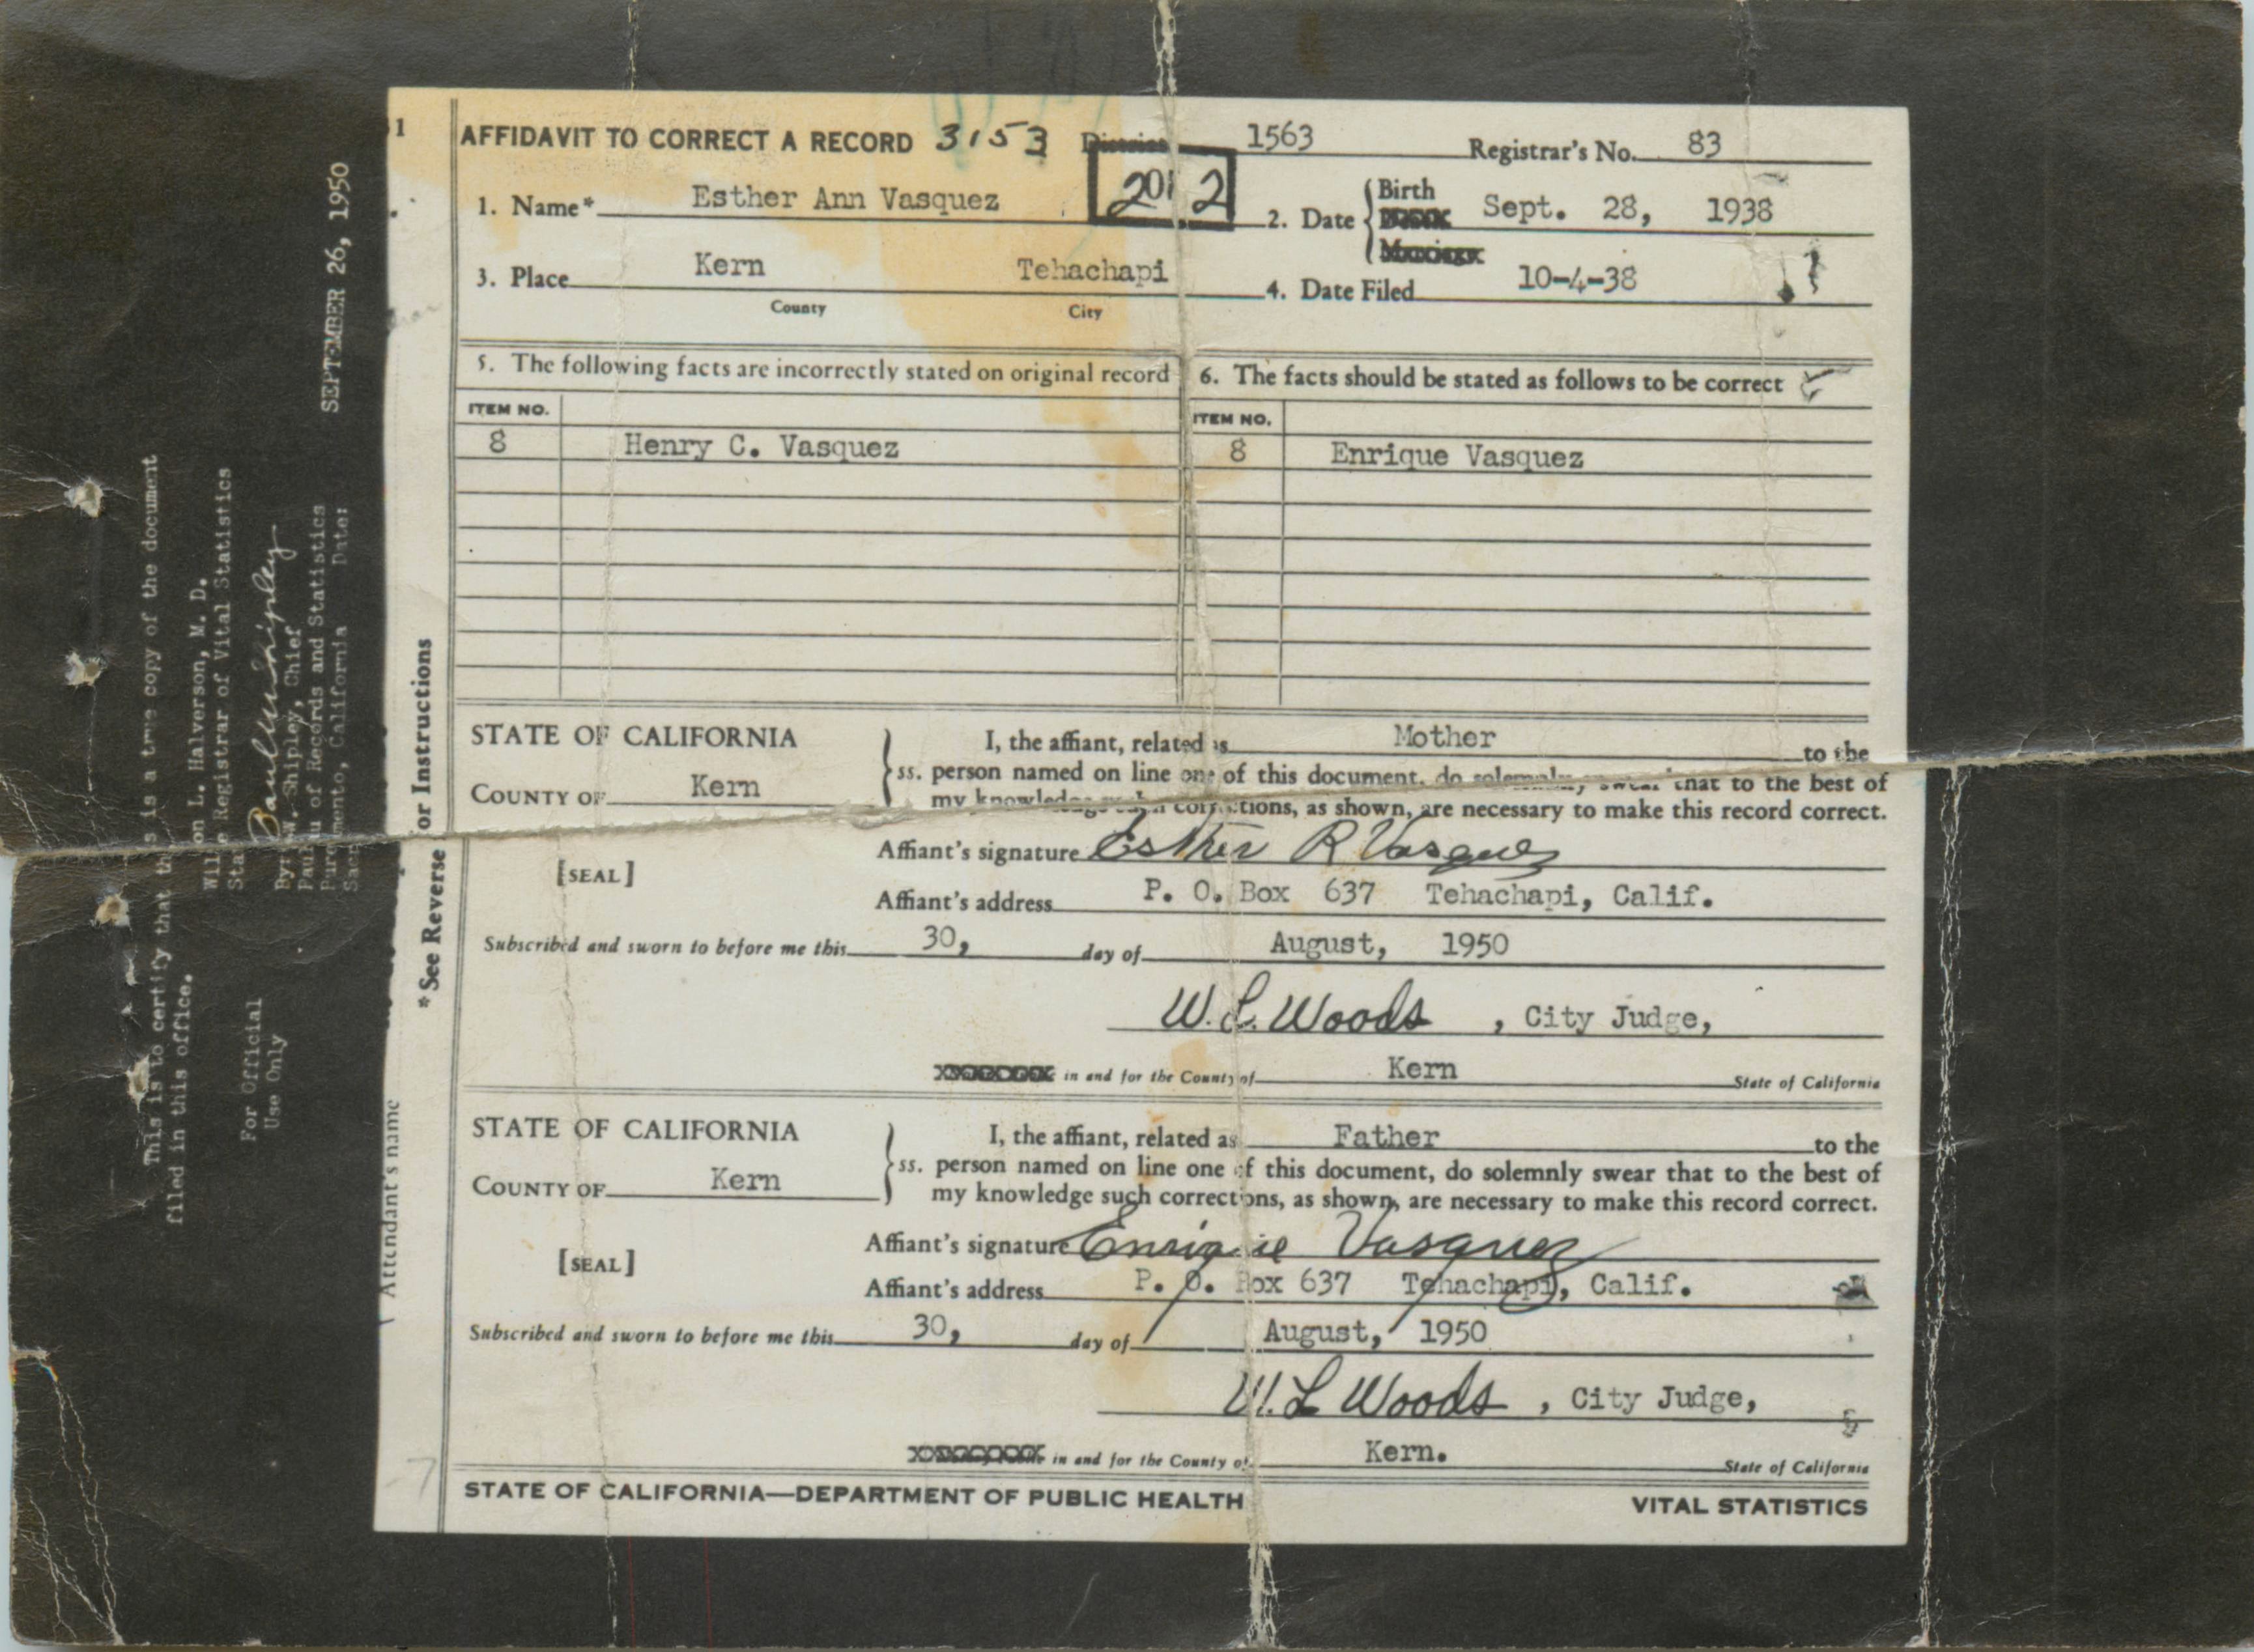 AFFIDAVIT TO CORRECT A RECORD 3153 District 1563 Registrar's No. 83
1. Name* Esther Ann Vasquez 2 of 2
2. Date Birth Sept. 28, 1938
3. Place Kern Tehachapi
County City
4. Date Filed 10-4-38
5. The following facts are incorrectly stated on original record
6. The facts should be stated as follows to be correct
ITEM NO. ITEM NO.
8 Henry C. Vasquez 8 Enrique Vasquez
STATE OF CALIFORNIA
COUNTY OF Kern
ss.
I, the affiant, related as Mother to the
person named on line one of this document, do solemnly swear that to the best of
my knowledge such corrections, as shown, are necessary to make this record correct.
[SEAL]
Affiant's signature Esther R Vasquez
Affiant's address P. O. Box 637 Tehachapi, Calif.
Subscribed and sworn to before me this 30, day of August, 1950
W. L. Woods , City Judge,
in and for the County of Kern State of California
STATE OF CALIFORNIA
COUNTY OF Kern
ss.
I, the affiant, related as Father to the
person named on line one of this document, do solemnly swear that to the best of
my knowledge such corrections, as shown, are necessary to make this record correct.
[SEAL]
Affiant's signature Enrique Vasquez
Affiant's address P. O. Box 637 Tehachapi, Calif.
Subscribed and sworn to before me this 30, day of August, 1950
W. L Woods , City Judge,
in and for the County of Kern. State of California
STATE OF CALIFORNIA—DEPARTMENT OF PUBLIC HEALTH VITAL STATISTICS
*See Reverse for Instructions
Attendant's name
This is to certify that this is a true copy of the document
filed in this office.
Wilton L. Halverson, M. D.
State Registrar of Vital Statistics
For Official
Use Only
By:
Paul W. Shipley, Chief
Bureau of Records and Statistics
Sacramento, California Date: SEPTEMBER 26, 1950